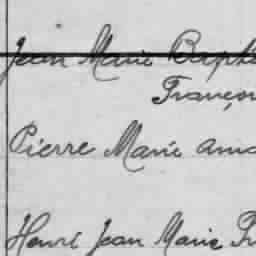 Jean Marie Bapt
Françoi
Pierre Marie
Henri Jean Marie